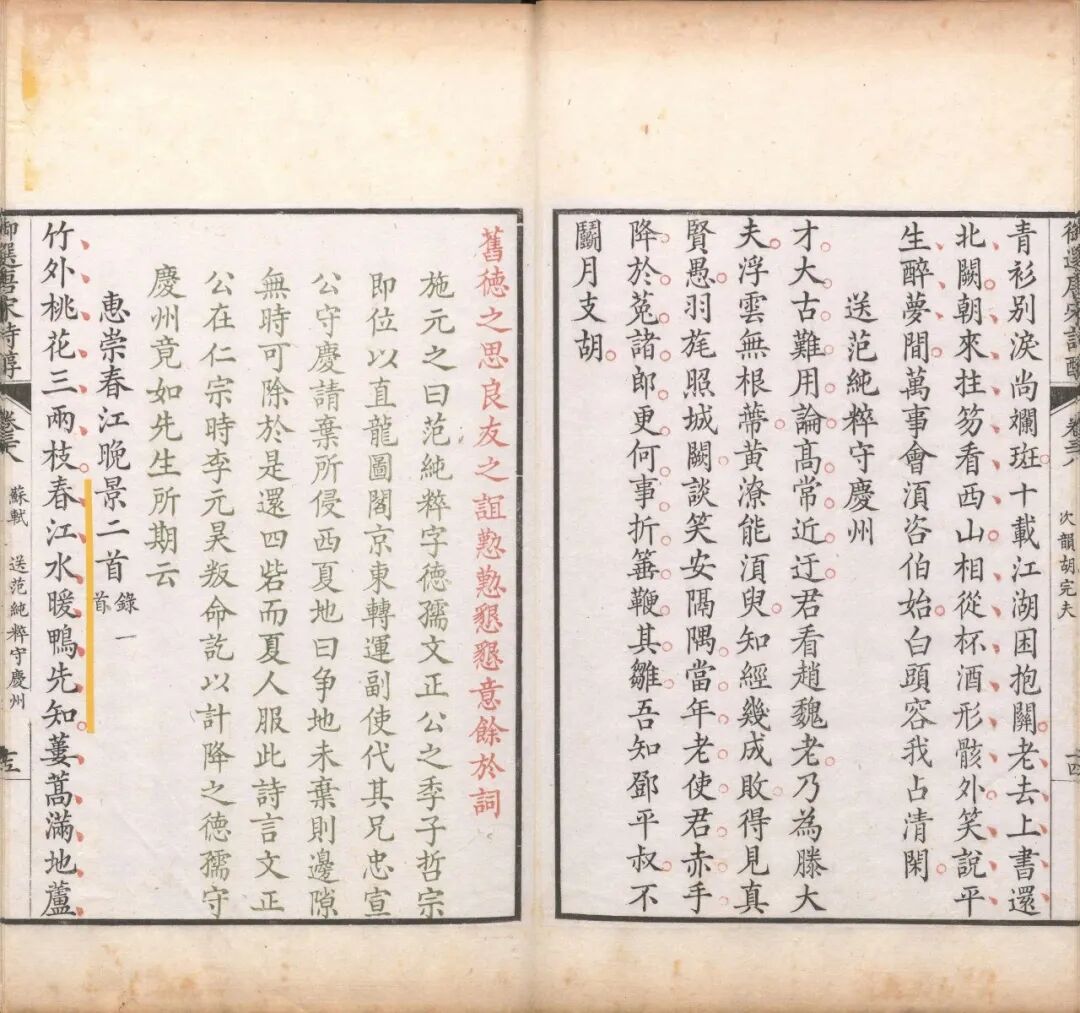 青衫别淚尚斕斑十載江湖困抱關老去上書還
北闕朝來拄笏看西山相從杯酒形骸外笑說平
生醉夢間萬事會湏咨伯始白頭容我占清閑
送范純粹守慶州
才大古難用論高常近迂君看趙魏老乃為滕大
夫浮雲無根蔕黃潦能湏臾知經幾成敗得見真
賢愚羽旄照城闕談笑安隔隅當年老使君赤手
降於菟諸郎更何事折箠鞭其雛吾知鄧平叔不
鬭月支胡
次韻胡完夫
舊德之思良友之誼懃懃懇懇意餘於詞
施元之曰范純粹字德孺文正公之季子哲宗
即位以直龍圖閣京東轉運副使代其兄忠宣
公守慶請棄所侵西夏地曰争地未棄則邊隙
無時可除於是還四砦而夏人服此詩言文正
公在仁宗時李元昊叛命訖以計降之德孺守
慶州竟如先生所期云
惠崇春江晚景二首 錄一首
竹外桃花三兩枝春江水暖鴨先知蔞蒿滿地蘆
御選唐宋詩醇 卷三八 蘇軾 送范純粹守慶州 十五